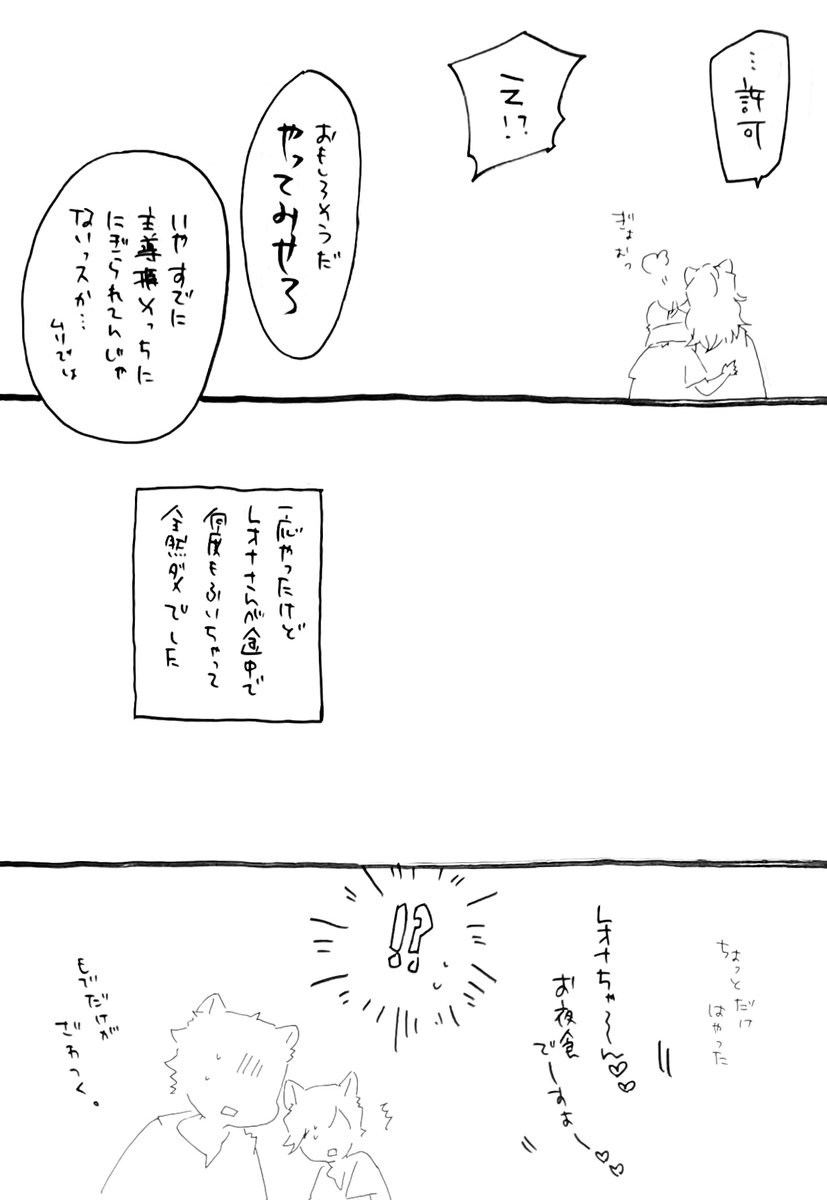 …許可
え!?
ぎょ
おっ
おもしろそうだ
やってみせろ
いやすでに
主導権そっちに
にぎられてんじゃ
ないっスか…
ムリでは
一応やったけど
レオナさんが途中で
何度もふいちゃって
全然ダメでした
ちょっとだけ
はやった
レオナちゃ〜〜ん♡♡
お夜食
でーすよー♡♡
!?
もぶだけが
ざわつく。